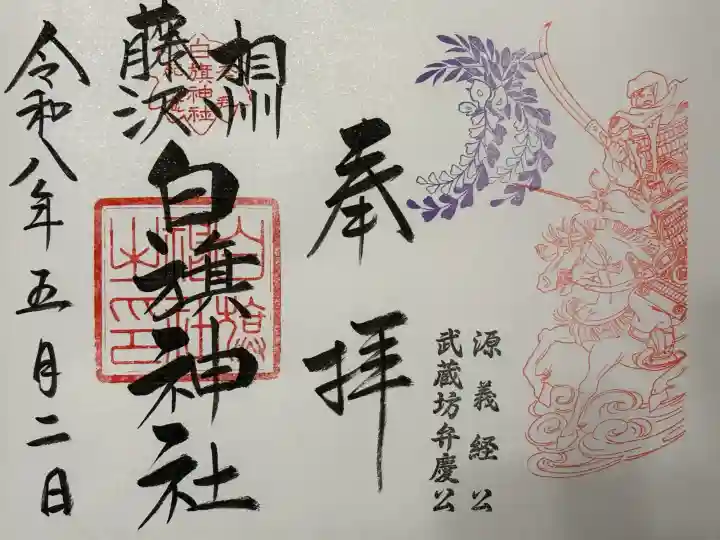 源義経公
武蔵坊弁慶公
奉拝
相州
藤沢
白旗神社
白旗神社
令和八年五月二日